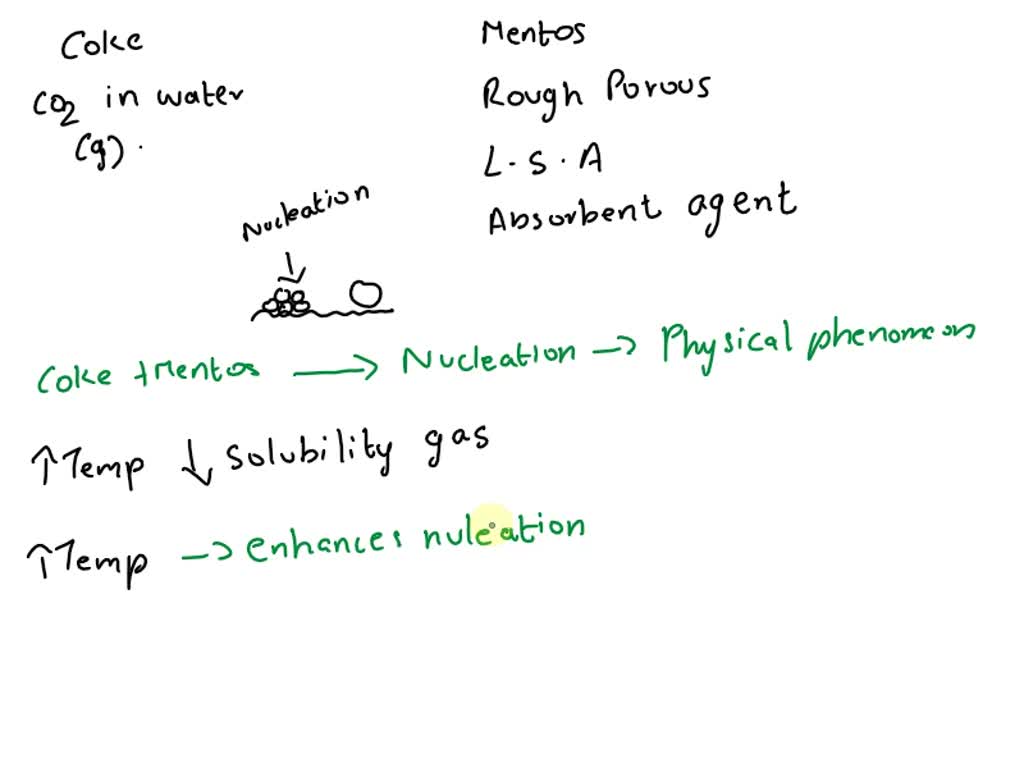 Coke
CO2 in water
(g) .
Mentos
Rough Porous
L. S. A
Absorbent agent
Nucleation
↓
Coke + Mentos → Nucleation → Physical phenomeon
↑Temp ↓ solubility gas
↑Temp → enhances nuleation